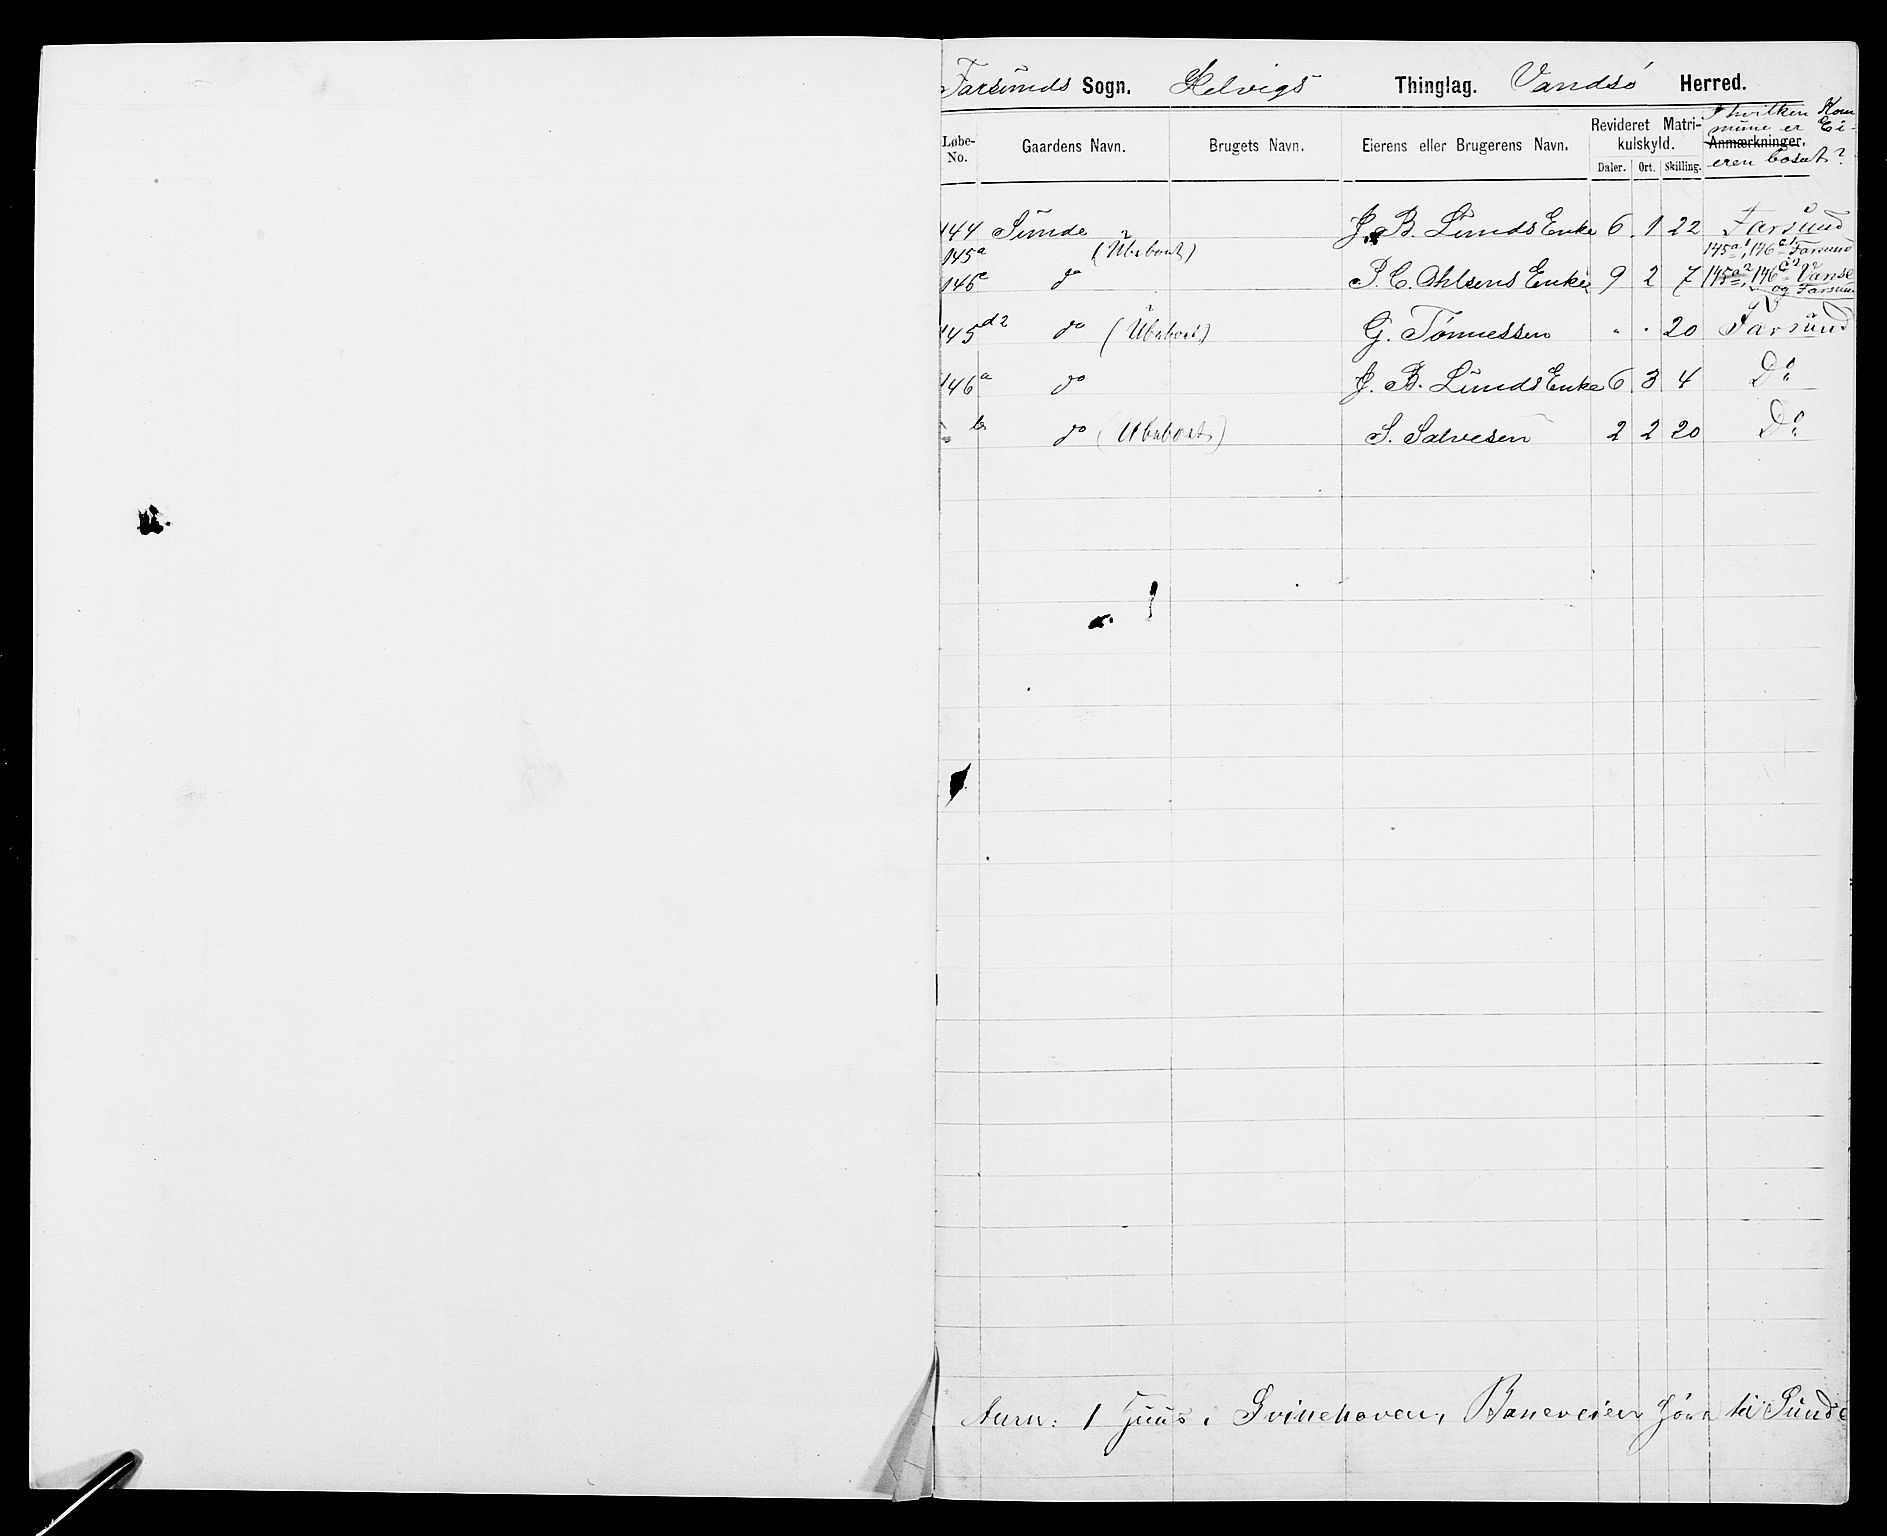 Farsunds Sogn. Helvigs Thinglag. Vandsø Herred.
Løbe-No. Gaardens Navn. Brugets Navn. Eierens eller Brugerens Navn. Revideret Matrikulskyld. Daler. Ort. Skilling. Anmærkninger.
I hvilken Kom
mune er Ei-
eren bosat?
144 Sunde J. B. Lunds Enke 6 1 22 Farsund
145a (Ubeboet) 145a1, 146c1 Farsund
146c do P. C. Ohlsens Enke 9 2 7 145a2, 146c2 Vanse
og Farsund
145d2 do (Ubeboet) G. Tønnessen " " 20 Farsund
146a do J. B. Lunds Enke 6 3 4 Do
" b do (Ubeboet) S. Salvesen 2 2 20 Do
Anm: 1 Huus i Svinehoven, Baneveien hører til Sunde